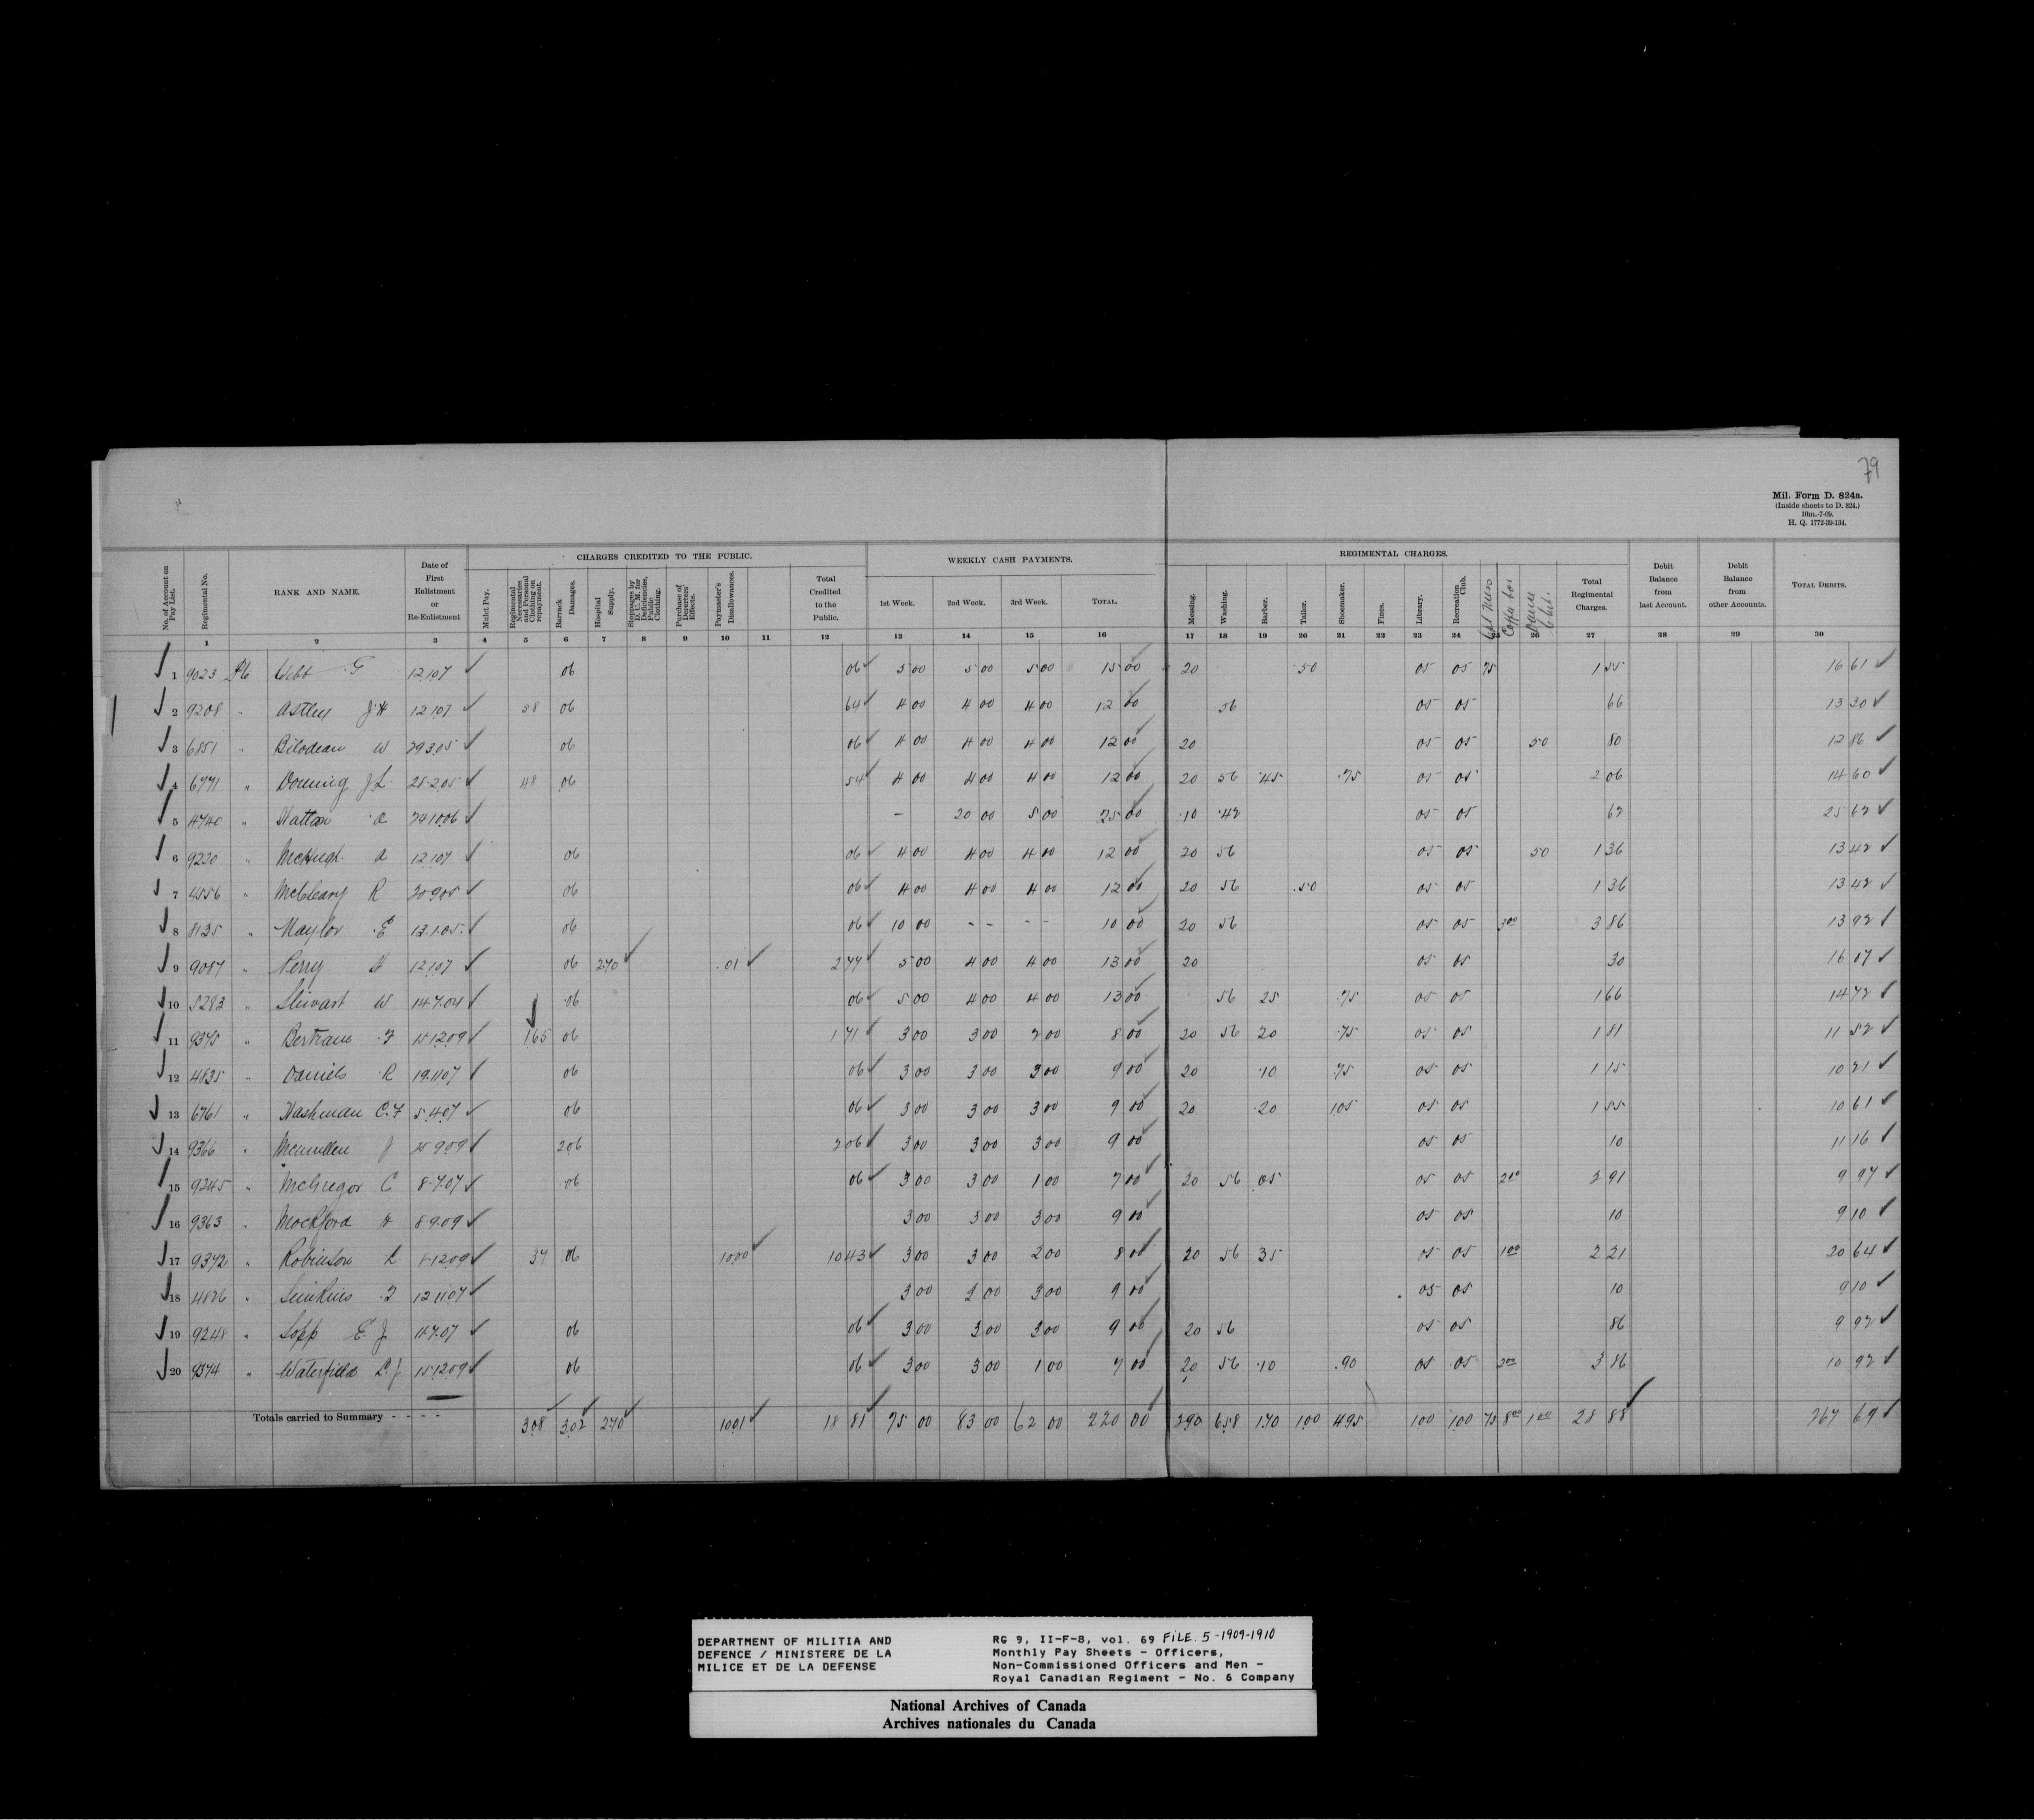 79
Mil. Form D. 824a.
(Inside sheets to D. 824.)
10m.-7-09.
H. Q. 1772-39-134.
CHARGES CREDITED TO THE PUBLIC. WEEKLY CASH PAYMENTS. REGIMENTAL CHARGES.
No. of Account on Pay List. Regimental No. RANK AND NAME. Date of First Enlistment or Re-Enlistment Mulct Pay. Regimental Necessaries and Personal Clothing on repayment. Barrack Damages. Hospital Supply. Stoppages by D. C. M. for Deficiencies, Public Clothing. Purchase of Deserters' Effects. Paymaster's Disallowances. Total Credited to the Public. 1st Week. 2nd Week. 3rd Week. TOTAL. Messing. Washing. Barber. Tailor. Shoemaker. Fines. Library. Recreation Club. Dance Total Regimental Charges. Debit Balance from last Account. Debit Balance from other Accounts. TOTAL DEBITS.
1 2 3 4 5 6 7 8 9 10 11 12 13 14 15 16 17 18 19 20 21 22 23 24 25 26 27 28 29 30
1 9023 Pte Webb G 12.1.07 06 06 5 00 5 00 5 00 15 00 20 50 05 05 75 1 55 16 61
2 9208 " Astley J.H 12.1.07 58 06 64 4 00 4 00 4 00 12 00 56 05 05 66 13 30
3 6851 " Bilodeau W 29.3.05 06 06 4 00 4 00 4 00 12 00 20 05 05 50 80 12 86
4 6771 " Downing J.L. 28.2.05 48 06 54 4 00 4 00 4 00 12 00 20 56 .45 .75 05 05 2 06 14 60
5 4740 " Hatton A 24.10.06 – 20 00 5 00 25 00 .10 .42 05 05 62 25 62
6 9220 " McHugh A 12.1.07 06 06 4 00 4 00 4 00 12 00 20 56 05 05 50 1 36 13 42
7 4556 " McCleary R 20.9.05 06 06 4 00 4 00 4 00 12 00 20 56 .50 05 05 1 36 13 42
8 8135 " Naylor E 13.1.05 06 06 10 00 - - - - 10 00 20 56 05 05 3 00 3 86 13 92
9 9087 " Perry H 12.1.07 06 2.70 .01 2 77 5 00 4 00 4 00 13 00 20 05 05 30 16 07
10 5283 " Stewart W 14.7.04 06 06 5 00 4 00 4 00 13 00 56 25 .75 05 05 1 66 14 72
11 9375 " Bertrand F 15.12.09 1.65 06 1 71 3 00 3 00 2 00 8 00 20 56 20 .75 05 05 1 81 11 52
12 4835 " Daniels R 19.11.07 06 06 3 00 3 00 3 00 9 00 20 .10 .75 05 05 1 15 10 21
13 6761 " Hashman C.F 5.4.07 06 06 3 00 3 00 3 00 9 00 20 .20 1.05 05 05 1 55 10 61
14 9366 " Mcmullen J 25.9.09 2.06 2 06 3 00 3 00 3 00 9 00 05 05 10 11 16
15 9245 " McGregor C 8.7.07 06 06 3 00 3 00 1 00 7 00 20 56 05 05 05 2 00 2 91 9 97
16 9363 " Mockford H 8.9.09 3 00 3 00 3 00 9 00 05 05 10 9 10
17 9372 " Robinson L. 8.12.09 37 06 10.00 10 43 3 00 3 00 2 00 8 00 20 56 35 05 05 1 00 2 21 20 64
18 4826 " Simkins J 12.11.07 3 00 3 00 3 00 9 00 05 05 10 9 10
19 9248 " Sopp E J 11.7.07 06 06 3 00 3 00 3 00 9 00 20 56 05 05 86 9 92
20 9374 " Waterfield L.J 15.12.09 06 06 3 00 3 00 1 00 7 00 20 56 .10 .90 05 05 2 00 3 86 10 92
Totals carried to Summary - - - - 3.08 3.02 2.70 10.01 18 81 75 00 83 00 62 00 220 00 2.90 6.58 1.70 1.00 4.95 1.00 1.00 75 8 00 1 00 28 88 267 69
DEPARTMENT OF MILITIA AND
DEFENCE / MINISTERE DE LA
MILICE ET DE LA DEFENSE
RG 9, II-F-8, vol. 69 FILE. 5-1909-1910
Monthly Pay Sheets - Officers,
Non-Commissioned Officers and Men -
Royal Canadian Regiment - No. 6 Company
National Archives of Canada
Archives nationales du Canada